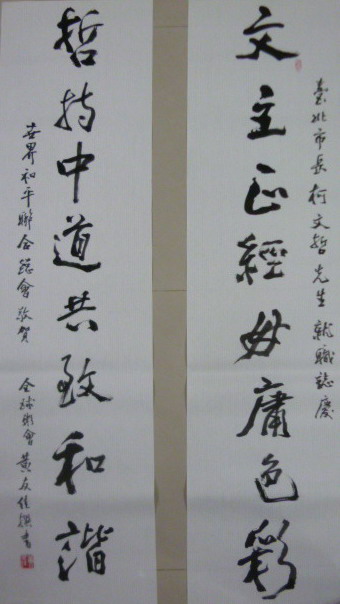 臺北市長柯文哲先生就職誌慶
文主正經毋庸色彩
哲持中道共致和諧
世界和平聯合總會敬賀
黃友佳撰書